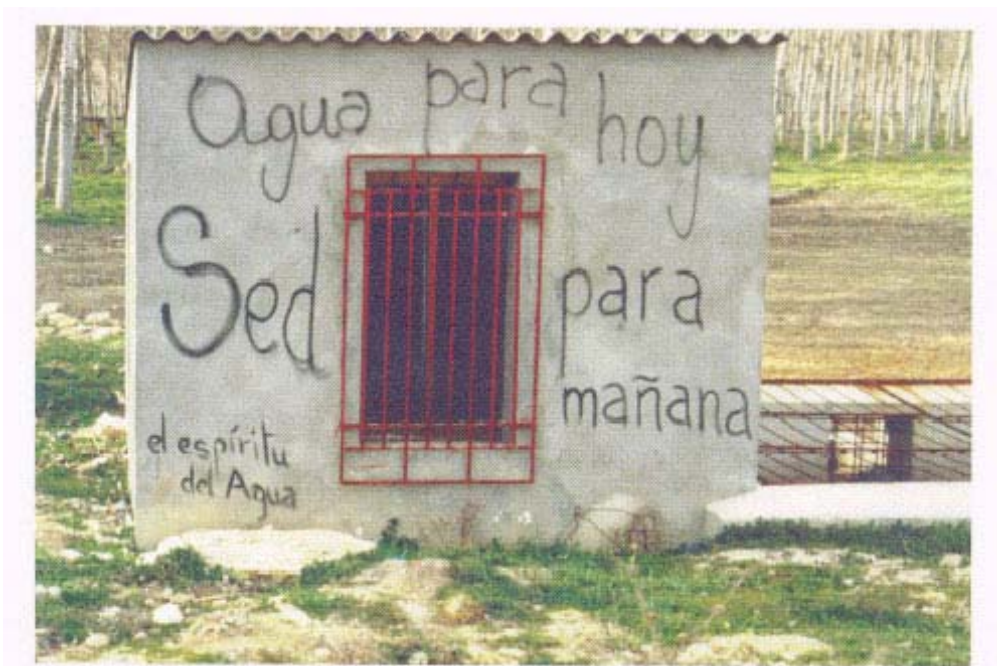 Agua para hoy
Sed para
mañana
el espíritu
del Agua